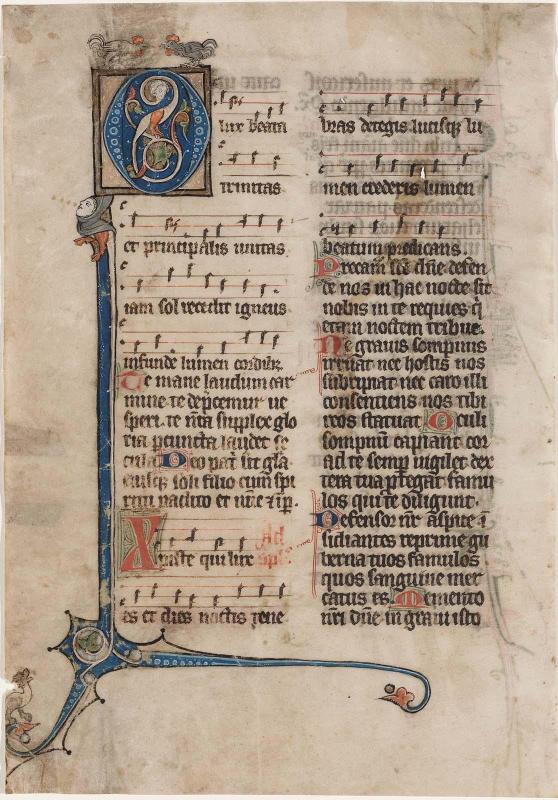 O lux beata
trinitas
et principalis unitas
iam sol recedit igneus
infunde lumen cordib;
Te mane laudum car
mine te dep̄cemur ue
speri. te n̄ra supplex glo
ria p̱ cuncta laudet se
cula Deo pat̄ sit gl̄a
eiusq; soli filio cum spi
ritu paclito et nūc ⁊ īp̱.
Ad
Xpiste qui lux
es et dies noctis tene
bras detegis lucisq; lu
men crederis lumen
beatum predicans.
Precam̄ sc̄e dn̄e defen
de nos in hac nocte sit
nobis in te requies q̄
etam noctem tribue.
Ne grauis sompnus
irruat nec hostis nos
subripiat nec caro illi
consenciens nos tibi
reos statuat Oculi
sompnū capiant cor
ad te semp̱ uigilet dex
tera tua p̄tegat famu
los qui te diligunt.
Defensor nr̄ aspice ī
sidiantes reprime gu
berna tuos famulos
quos sanguine mer
catus es. Memento
nr̄i dn̄e in graui isto